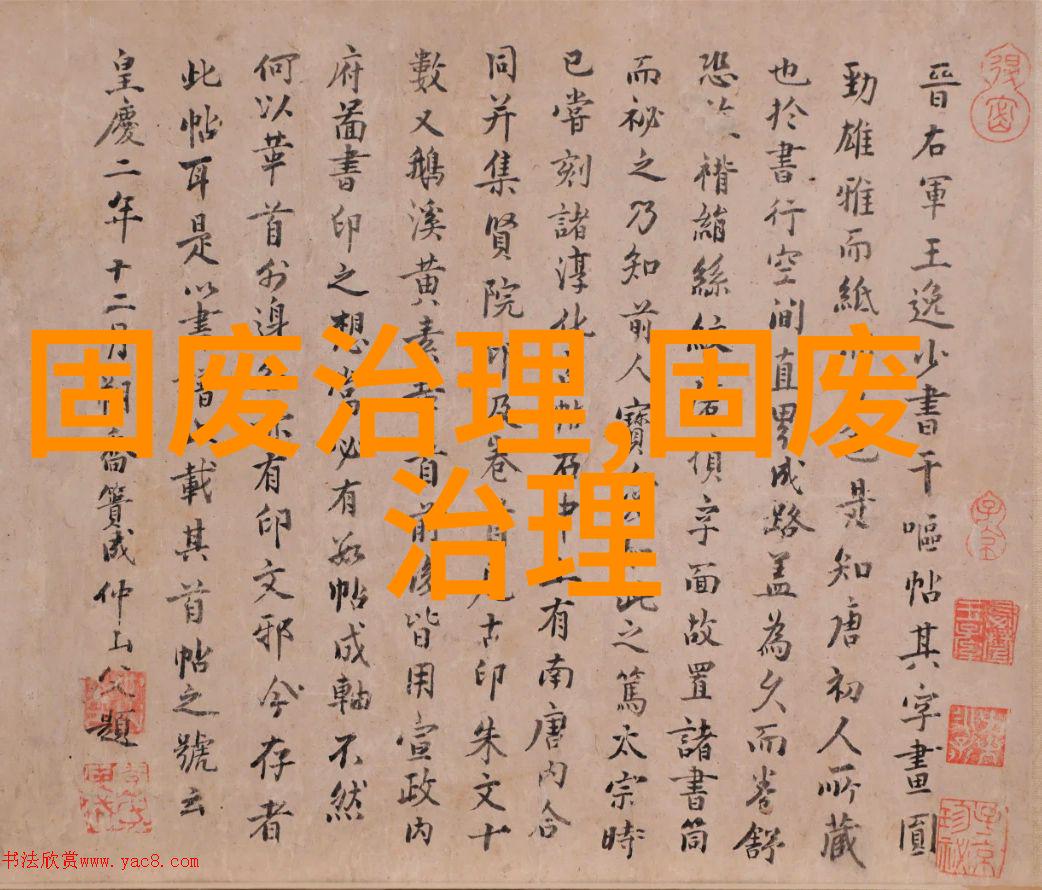 固废治理,固废
治理
晉右軍王逸少書干嘔帖其字畫圓
勁雄雅而紙色是知唐初人所藏
也於書行空間直界成路蓋為久而卷舒
恐褙縮絲紋損字面故置諸書筒
而祕之乃知前人寶此之篤太宗時
已嘗刻諸淳化帖有南唐內合
同并集賢院印及卷古印朱文十
數又鵝溪黃素首前後皆用宣政內
府啚書印之想當必有數帖成軸不然
何以華首外邊有印文邪今存者
此帖耳是以載其首帖之號云
皇慶二年十二月簣成仲山父題
书法欣赏www.yac8.com